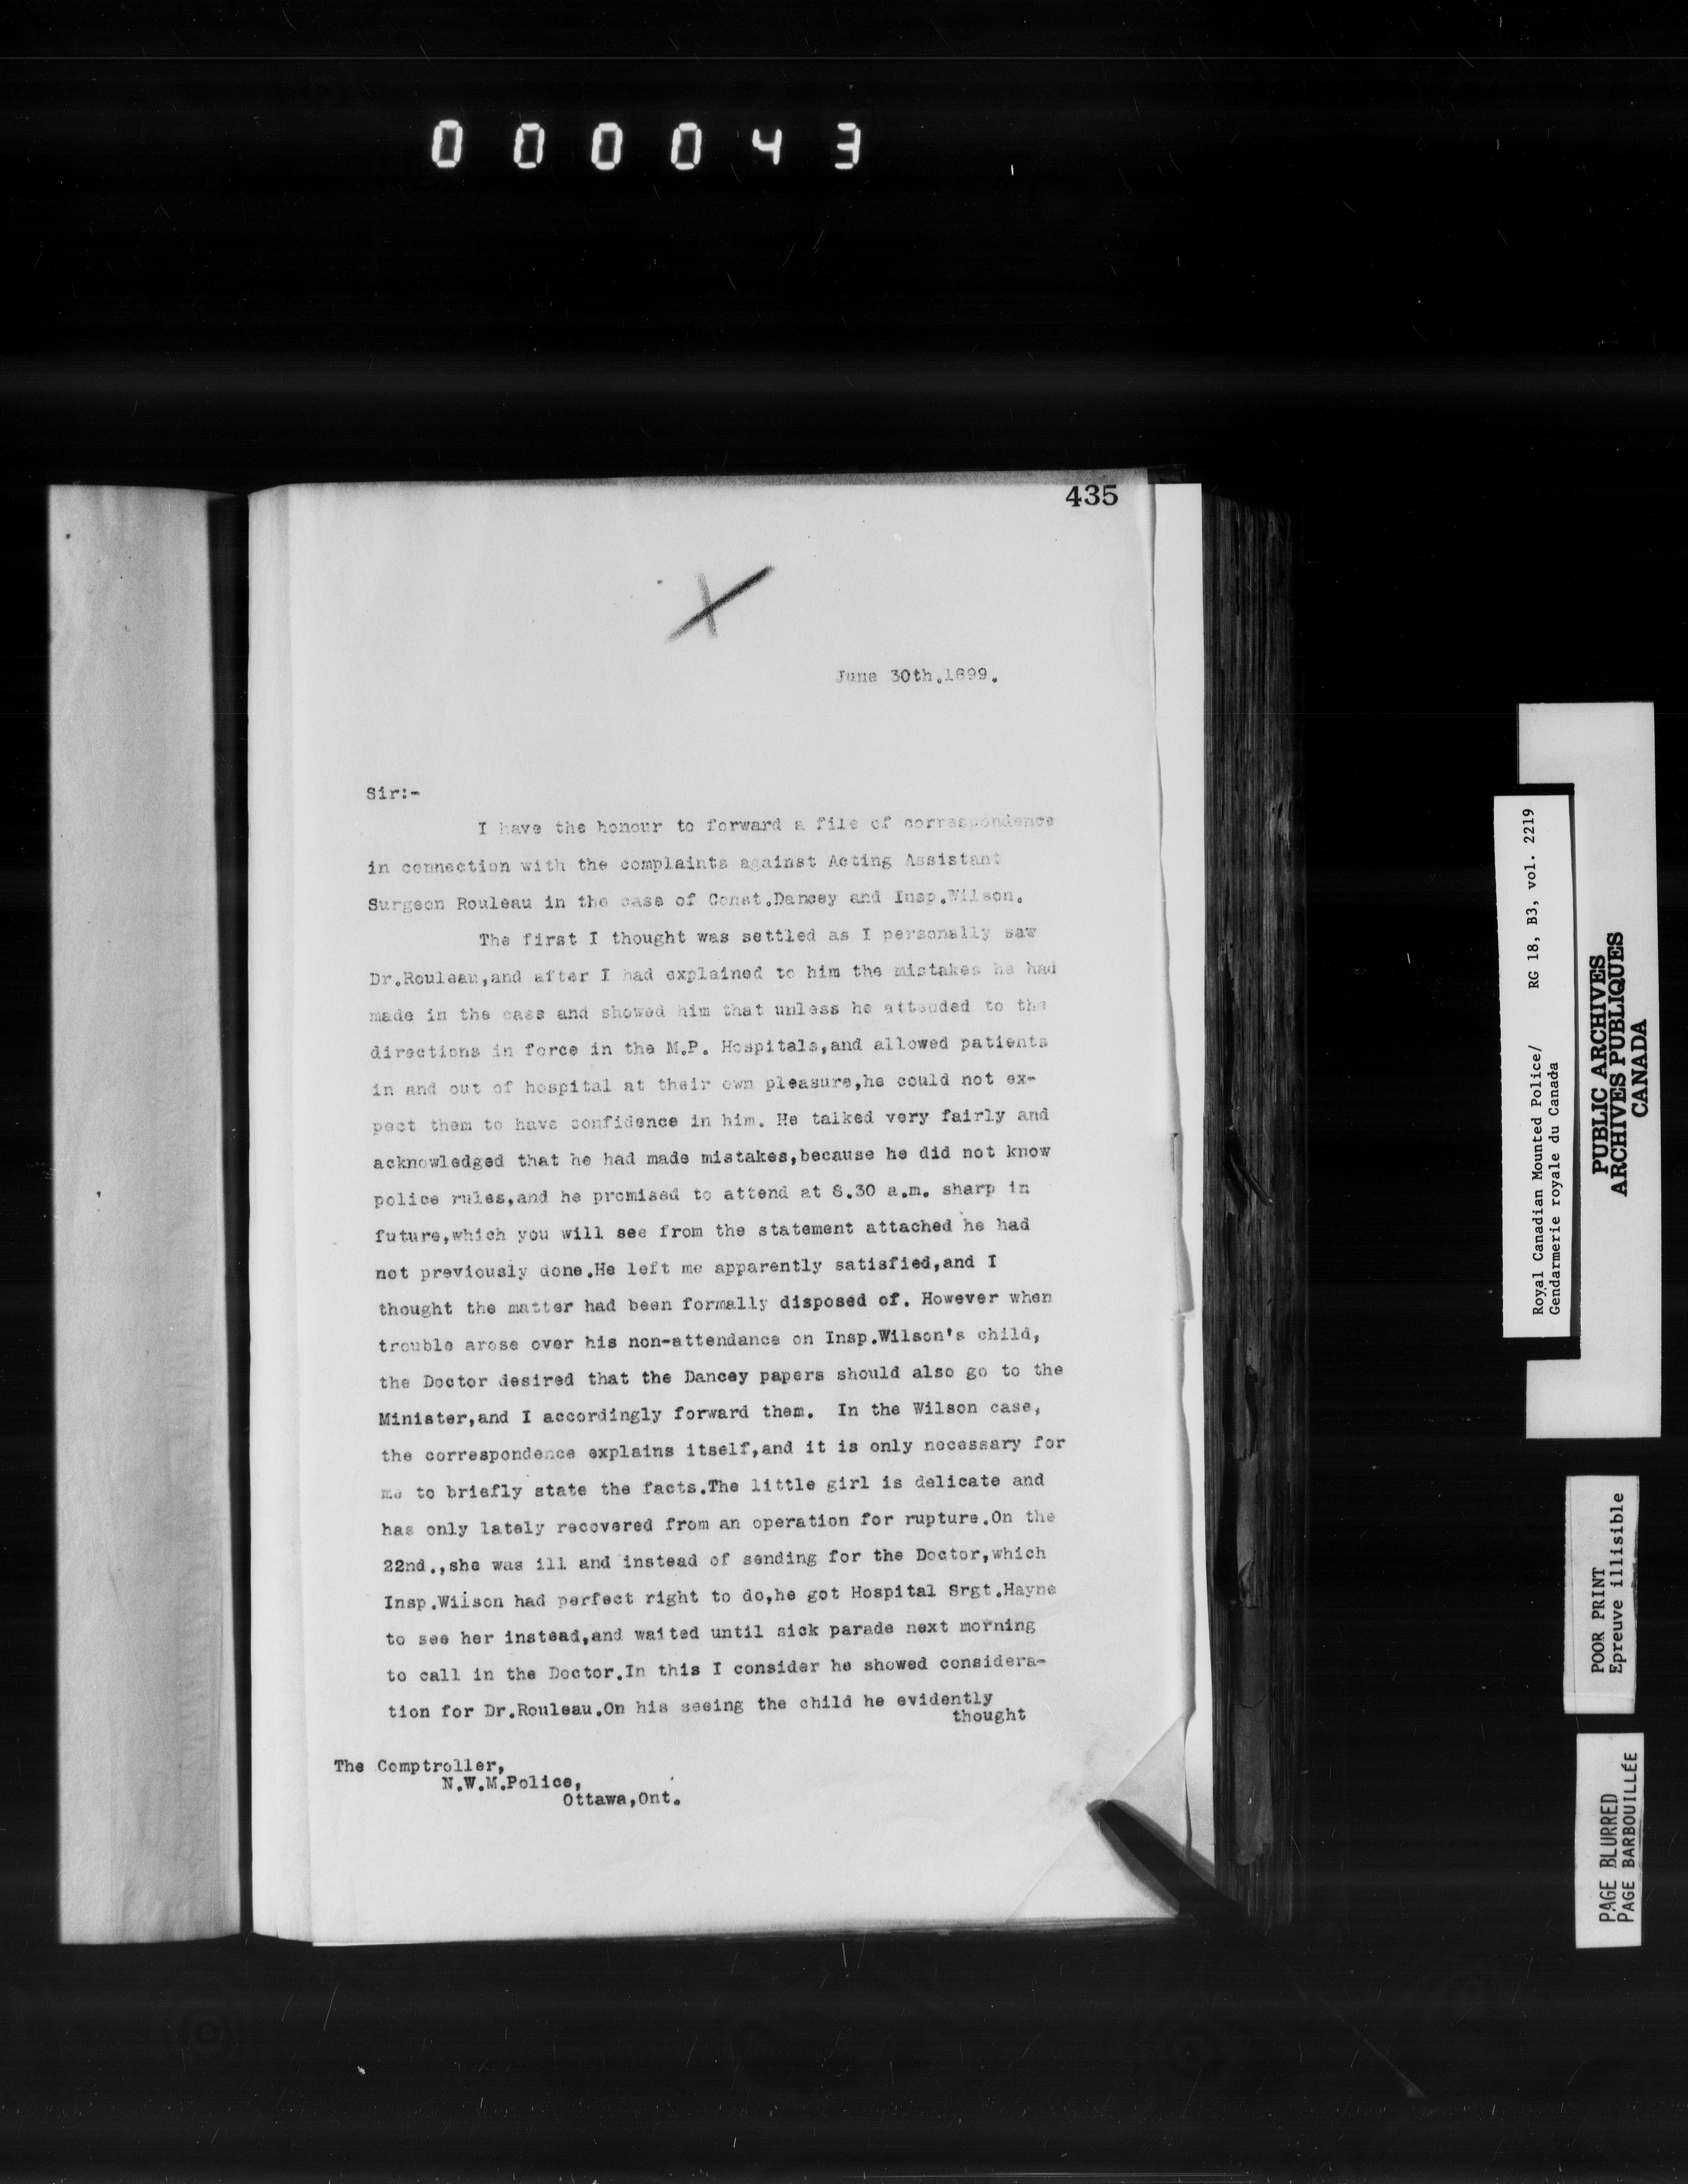 000043
435
June 30th.1899.
Sir:-
I have the honour to forward a file of correspondence
in connection with the complaints against Acting Assistant
Surgeon Rouleau in the case of Const.Dancey and Insp.Wilson.
The first I thought was settled as I personally saw
Dr.Rouleau,and after I had explained to him the mistakes he had
made in the case and showed him that unless he attended to the
directions in force in the M.P. Hospitals,and allowed patients
in and out of hospital at their own pleasure,he could not ex-
pect them to have confidence in him. He talked very fairly and
acknowledged that he had made mistakes,because he did not know
police rules,and he promised to attend at 8.30 a.m. sharp in
future,which you will see from the statement attached he had
not previously done.He left me apparently satisfied,and I
thought the matter had been formally disposed of. However when
trouble arose over his non-attendance on Insp.Wilson's child,
the Doctor desired that the Dancey papers should also go to the
Minister,and I accordingly forward them. In the Wilson case,
the correspondence explains itself,and it is only necessary for
me to briefly state the facts.The little girl is delicate and
has only lately recovered from an operation for rupture.On the
22nd.,she was ill and instead of sending for the Doctor,which
Insp.Wilson had perfect right to do,he got Hospital Srgt.Hayne
to see her instead,and waited until sick parade next morning
to call in the Doctor.In this I consider he showed considera-
tion for Dr.Rouleau.On his seeing the child he evidently
thought
The Comptroller,
N.W.M.Police,
Ottawa,Ont.
Royal Canadian Mounted Police/ RG 18, B3, vol. 2219
Gendarmerie royale du Canada
PUBLIC ARCHIVES
ARCHIVES PUBLIQUES
CANADA
POOR PRINT
Epreuve illisible
PAGE BLURRED
PAGE BARBOUILLÉE